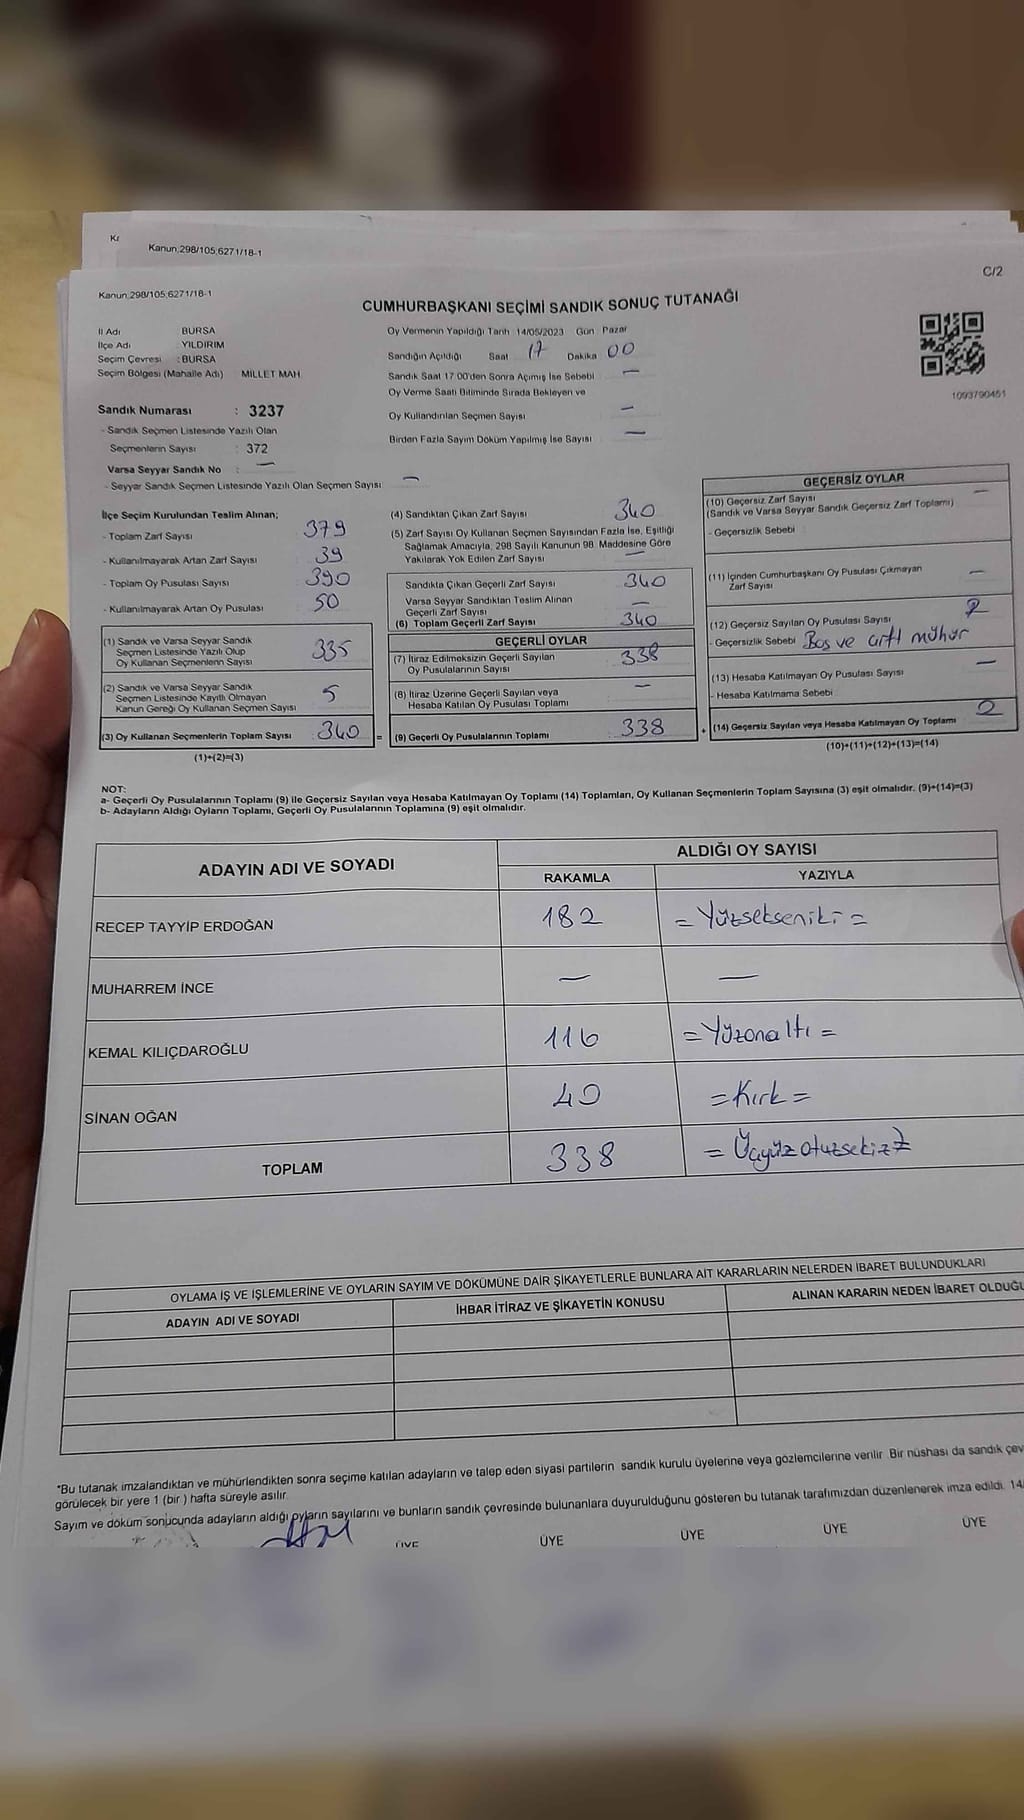 Kanun;298/105;6271/18-1
Kanun;298/105;6271/18-1
C/2
CUMHURBAŞKANI SEÇİMİ SANDIK SONUÇ TUTANAĞI
İl Adı BURSA
İlçe Adı : YILDIRIM
Seçim Çevresi : BURSA
Seçim Bölgesi (Mahalle Adı) MİLLET MAH.
Oy Vermenin Yapıldığı Tarih :14/05/2023 Gün : Pazar
Sandığın Açıldığı Saat 17 Dakika 00
Sandık Saat 17:00'den Sonra Açımış İse Sebebi —
Oy Verme Saati Bitiminde Sırada Bekleyen ve
Oy Kullandırılan Seçmen Sayısı —
Birden Fazla Sayım Döküm Yapılmış İse Sayısı —
1093790451
Sandık Numarası : 3237
- Sandık Seçmen Listesinde Yazılı Olan
Seçmenlerin Sayısı : 372
Varsa Seyyar Sandık No : —
- Seyyar Sandık Seçmen Listesinde Yazılı Olan Seçmen Sayısı —
İlçe Seçim Kurulundan Teslim Alınan;
- Toplam Zarf Sayısı 379
- Kullanılmayarak Artan Zarf Sayısı 39
- Toplam Oy Pusulası Sayısı 390
- Kullanılmayarak Artan Oy Pusulası 50
(1) Sandık ve Varsa Seyyar Sandık
Seçmen Listesinde Yazılı Olup
Oy Kullanan Seçmenlerin Sayısı 335
(2) Sandık ve Varsa Seyyar Sandık
Seçmen Listesinde Kayıtlı Olmayan
Kanun Gereği Oy Kullanan Seçmen Sayısı 5
(3) Oy Kullanan Seçmenlerin Toplam Sayısı : 340 =
(1)+(2)=(3)
(4) Sandıktan Çıkan Zarf Sayısı 340
(5) Zarf Sayısı Oy Kullanan Seçmen Sayısından Fazla İse, Eşitliği
Sağlamak Amacıyla, 298 Sayılı Kanunun 98. Maddesine Göre
Yakılarak Yok Edilen Zarf Sayısı —
Sandıkta Çıkan Geçerli Zarf Sayısı 340
Varsa Seyyar Sandıktan Teslim Alınan
Geçerli Zarf Sayısı —
(6) Toplam Geçerli Zarf Sayısı 340
GEÇERLİ OYLAR
(7) İtiraz Edilmeksizin Geçerli Sayılan
Oy Pusulalarının Sayısı 338
(8) İtiraz Üzerine Geçerli Sayılan veya
Hesaba Katılan Oy Pusulası Toplamı —
(9) Geçerli Oy Pusulalarının Toplamı : 338 +
GEÇERSİZ OYLAR
(10) Geçersiz Zarf Sayısı —
(Sandık ve Varsa Seyyar Sandık Geçersiz Zarf Toplamı)
- Geçersizlik Sebebi
(11) İçinden Cumhurbaşkanı Oy Pusulası Çıkmayan
Zarf Sayısı —
(12) Geçersiz Sayılan Oy Pusulası Sayısı 2
- Geçersizlik Sebebi Boş ve çift mühür
(13) Hesaba Katılmayan Oy Pusulası Sayısı —
- Hesaba Katılmama Sebebi
(14) Geçersiz Sayılan veya Hesaba Katılmayan Oy Toplamı 2
(10)+(11)+(12)+(13)=(14)
NOT:
a- Geçerli Oy Pusulalarının Toplamı (9) ile Geçersiz Sayılan veya Hesaba Katılmayan Oy Toplamı (14) Toplamları, Oy Kullanan Seçmenlerin Toplam Sayısına (3) eşit olmalıdır. (9)+(14)=(3)
b- Adayların Aldığı Oyların Toplamı, Geçerli Oy Pusulalarının Toplamına (9) eşit olmalıdır.
ADAYIN ADI VE SOYADI
ALDIĞI OY SAYISI
RAKAMLA YAZIYLA
RECEP TAYYİP ERDOĞAN 182 = Yüzsekseniki =
MUHARREM İNCE — —
KEMAL KILIÇDAROĞLU 116 = Yüzonaltı =
SİNAN OĞAN 40 = Kırk =
TOPLAM 338 = Üçyüzotuzsekiz =
OYLAMA İŞ VE İŞLEMLERİNE VE OYLARIN SAYIM VE DÖKÜMÜNE DAİR ŞİKAYETLERLE BUNLARA AİT KARARLARIN NELERDEN İBARET BULUNDUKLARI
ADAYIN ADI VE SOYADI İHBAR İTİRAZ VE ŞİKAYETİN KONUSU ALINAN KARARIN NEDEN İBARET OLDUĞU
*Bu tutanak imzalandıktan ve mühürlendikten sonra seçime katılan adayların ve talep eden siyasi partilerin sandık kurulu üyelerine veya gözlemcilerine verilir. Bir nüshası da sandık çev
görülecek bir yere 1 (bir) hafta süreyle asılır.
Sayım ve döküm sonucunda adayların aldığı oyların sayılarını ve bunların sandık çevresinde bulunanlara duyurulduğunu gösteren bu tutanak tarafımızdan düzenlenerek imza edildi. 14/
ÜYE ÜYE ÜYE ÜYE ÜYE